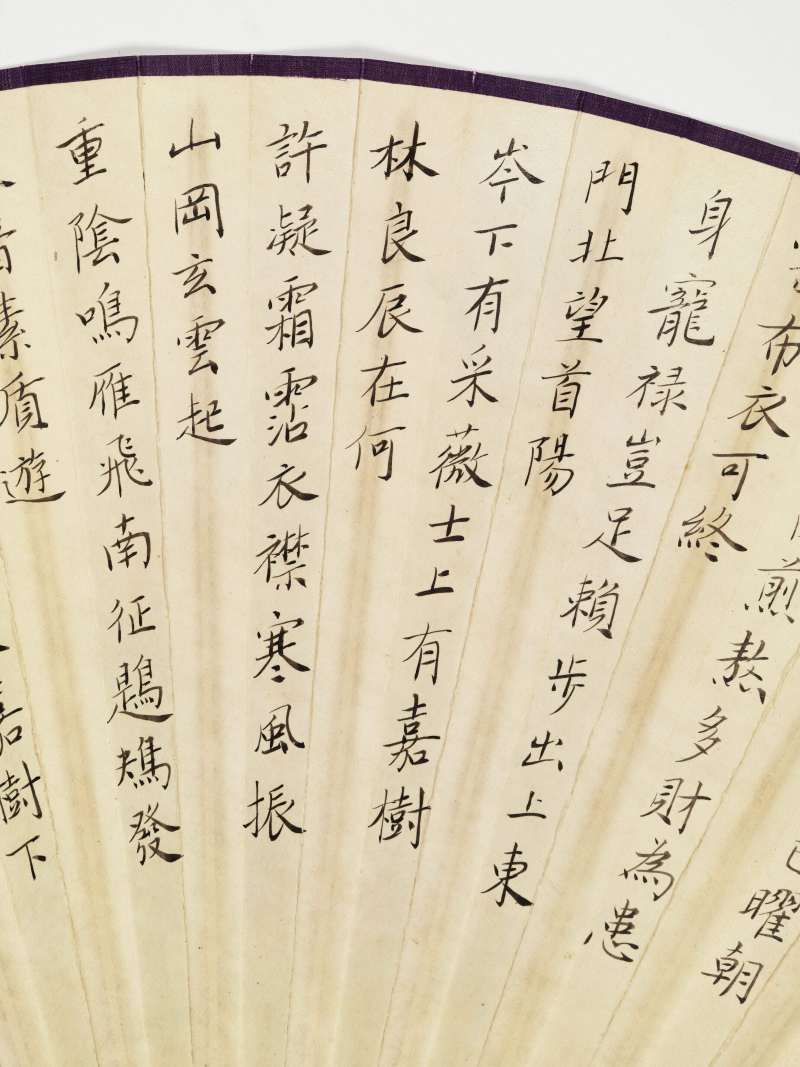 曜朝
煎熬多財為患
布衣可終
身寵禄豈足賴步出上東
門北望首陽
岑下有采薇士上有嘉樹
林良辰在何
許凝霜霑衣襟寒風振
山岡玄雲起
重陰鳴雁飛南征鶗鴂發
音素質遊
嘉樹下